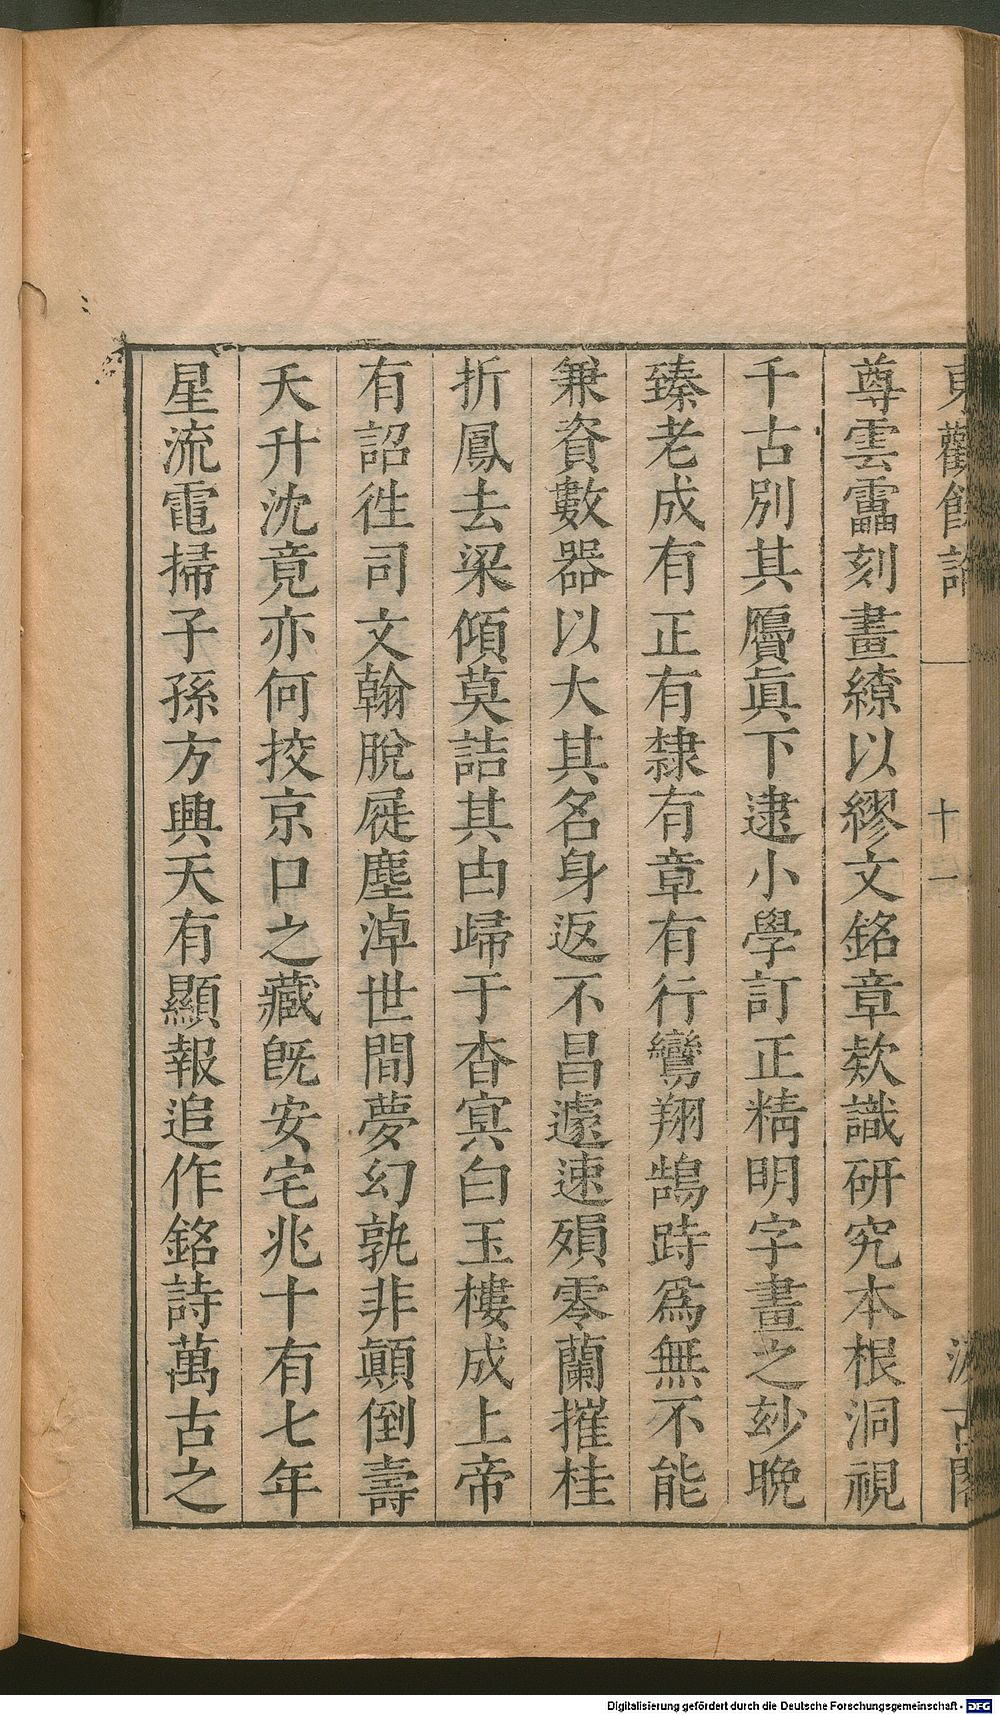 東觀餘論
十一
汲古閣
尊雲靁刻畫繚以繆文銘章欵識硏究本根洞視
千古別其贗眞下逮小學訂正精明字畫之玅晚
臻老成有正有隸有章有行鸞翔鵠跱爲無不能
兼資數器以大其名身返不昌遽速殞零蘭摧桂
折鳳去梁傾莫詰其由歸于杳冥白玉樓成上帝
有詔徃司文翰脫屣塵淖世間夢幻孰非顚倒壽
夭升沈竟亦何挍京口之藏旣安宅兆十有七年
星流電掃子孫方興天有顯報追作銘詩萬古之
Digitalisierung gefördert durch die Deutsche Forschungsgemeinschaft - DFG